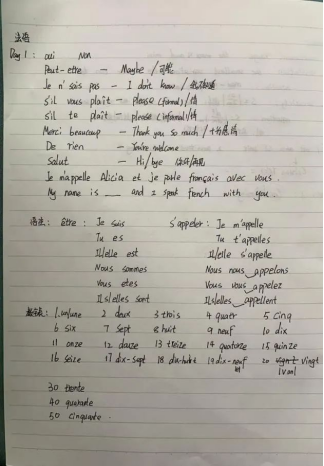 法语
Day 1: oui non
Peut-etre — Maybe /可能
Je n'sais pas — I don't know /
s'il vous plaît — please (formal) /请
s'il te plaît — please (informal) /请
Merci beaucoup — Thank you so much /
De rien — You're welcome
Salut — Hi/bye
Je m'appelle Alicia et je parle français avec vous.
My name is ___ and I speak french with you.
语法: être: Je suis s'appeler: Je m'appelle
Tu es Tu t'appelles
Il/elle est Il/elle s'appelle
Nous sommes Nous nous appelons
Vous etes Vous vous appelez
Ils/elles sont Ils/elles appellent
1 un/une 2 deux 3 thois 4 quatr 5 cinq
6 six 7 sept 8 huit 9 neuf 10 dix
11 onze 12 douze 13 treize 14 quatorze 15 quinze
16 seize 17 dix-sept 18 dix-huit 19 dix-neuf 20 vingt
30 trente
40 quarante
50 cinquante